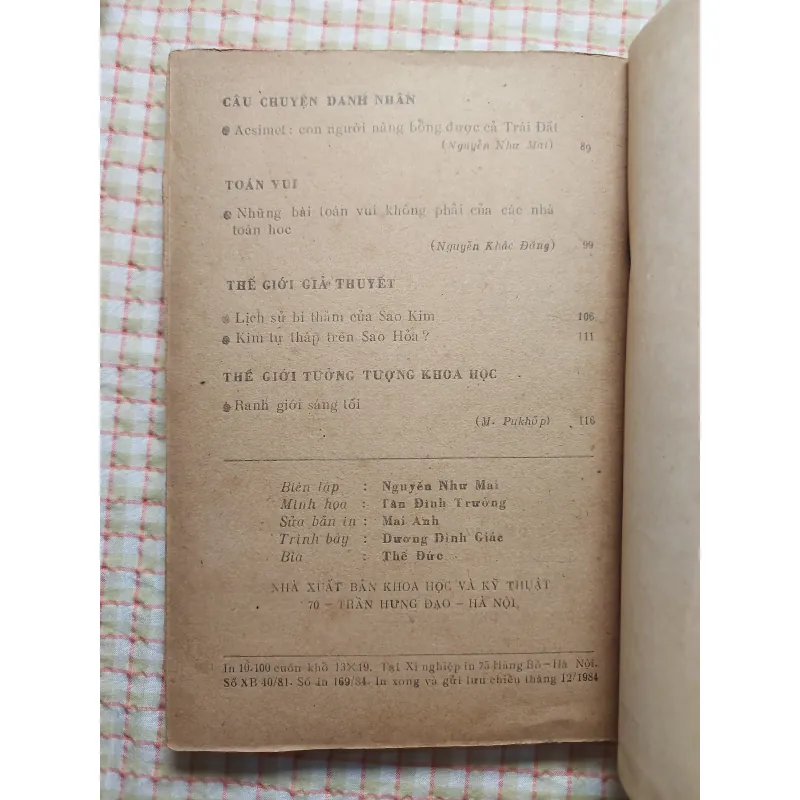 CÂU CHUYỆN DANH NHÂN
Acsimet: con người nâng bổng được cả Trái Đất
(Nguyễn Như Mai) 89
TOÁN VUI
Những bài toán vui không phải của các nhà
toán học
(Nguyễn Khắc Đăng) 99
THẾ GIỚI GIẢ THUYẾT
Lịch sử bi thảm của Sao Kim 106
Kim tự tháp trên Sao Hỏa? 111
THẾ GIỚI TƯỞNG TƯỢNG KHOA HỌC
Ranh giới sáng tối
(M. Pukhốp) 116
Biên tập : Nguyễn Như Mai
Minh họa : Tân Đình Trưởng
Sửa bản in : Mai Anh
Trình bày : Dương Đình Giác
Bìa : Thế Đức
NHÀ XUẤT BẢN KHOA HỌC VÀ KỸ THUẬT
70 – TRẦN HƯNG ĐẠO – HÀ NỘI
In 10.100 cuốn khổ 13×19. Tại Xí nghiệp in 75 Hàng Bồ–Hà Nội.
Số XB 40/81. Số in 169/84. In xong và gửi lưu chiểu tháng 12/1984